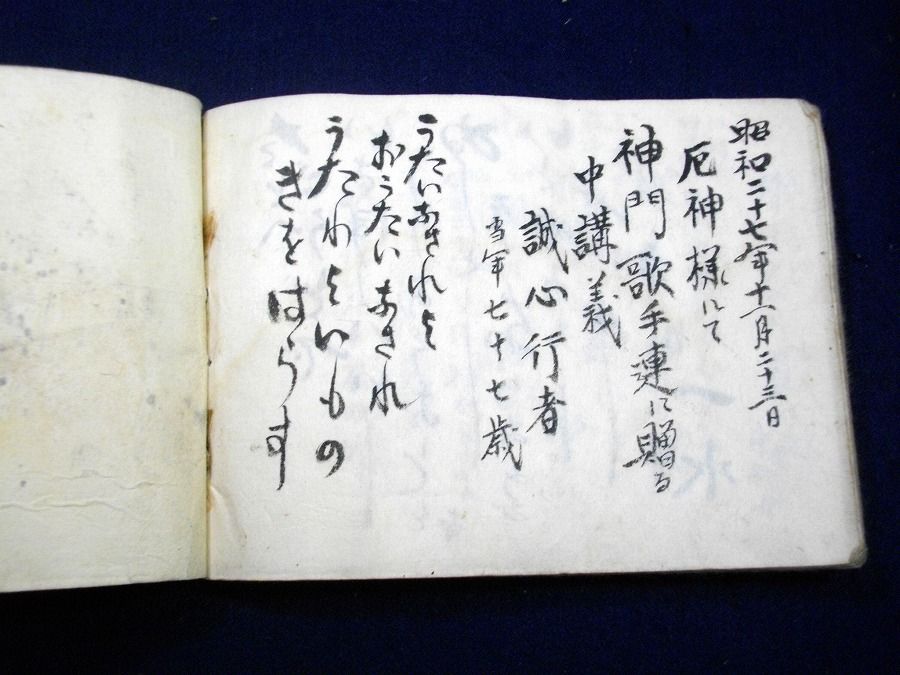 昭和二十七年十一月二十三日
厄神様にて
神門歌手連に贈る
中講義
誠心行者
当年七十七歳
うたいなされよ
おうたいなされ
うたわよいもの
きをはらす